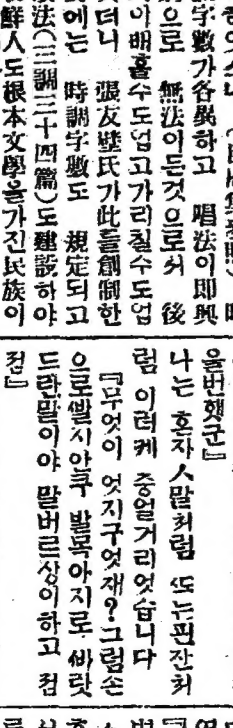 字數가各異하고 唱法이即興
으로 無法이든것으로서 後
이배홀수도업고가리칠수도업
더니 張友壁氏가此를創制한
에는 時調字數도 規定되고
法(三調三十四篇)도建設하야
鮮人도根本文學을가진民族이
을번햇군』
나는 혼자人말처럼 ᄯᅩ는핀잔처
럼 이러케 중얼거리엇습니다
『무엇이 엇지구엇재?그럼손
으로ᄲᅢᆯ시안쿠 발목아지로 ᄲᅢ랏
드란말이야 말버르상이하고 점
점』